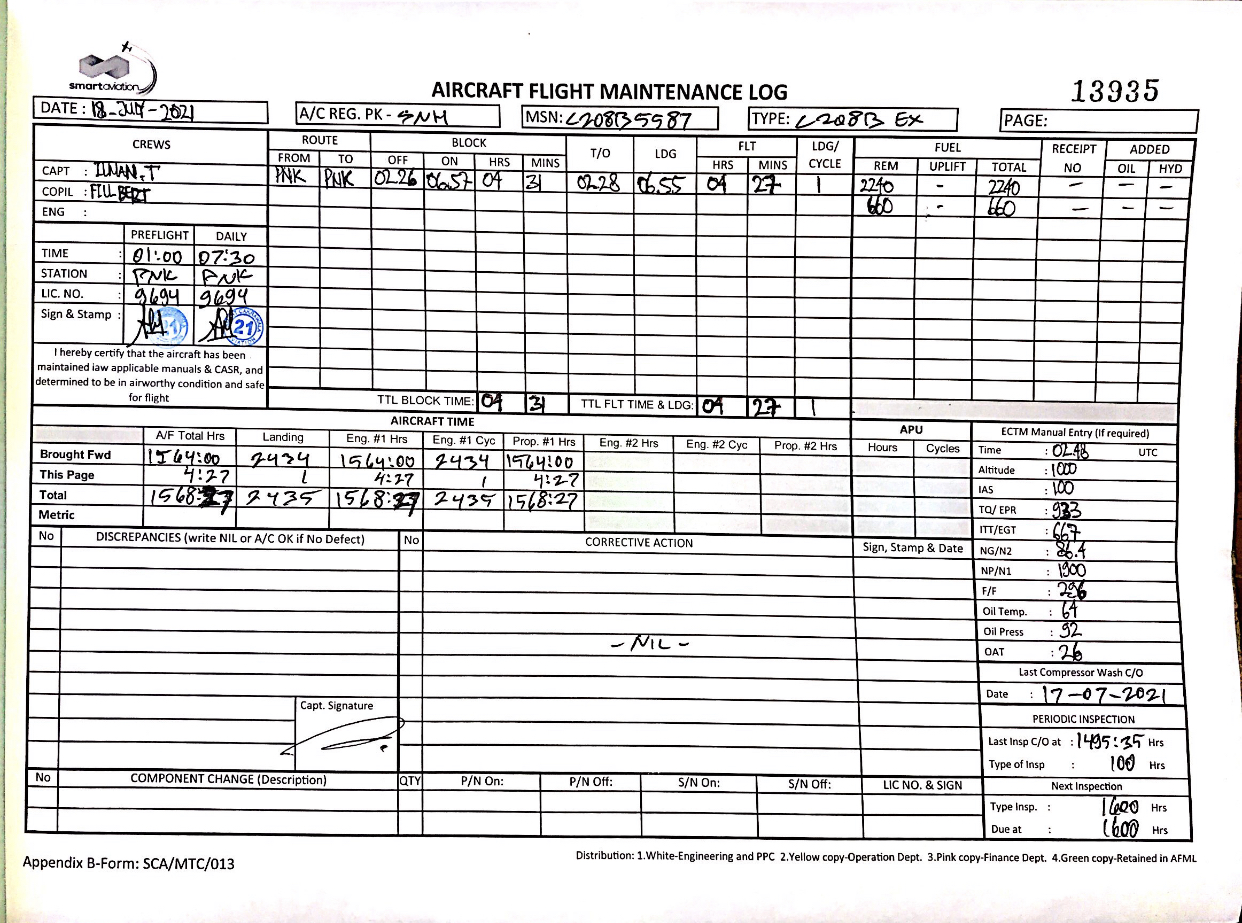 smartaviation
AIRCRAFT FLIGHT MAINTENANCE LOG
13935
DATE : 18-JULY-2021
A/C REG. PK - SNH
MSN: C208B5587
TYPE: C208B EX
PAGE:
CREWS
ROUTE BLOCK T/O LDG FLT LDG/ CYCLE FUEL RECEIPT NO ADDED
FROM TO OFF ON HRS MINS HRS MINS REM UPLIFT TOTAL OIL HYD
CAPT :
PNK PNK 02.26 06.57 04 31 02.28 06.55 04 27 1 2240 - 2240 - - -
COPIL : FILLBERT
660 - 660 - - -
ENG :
PREFLIGHT DAILY
TIME : 01:00 07:30
STATION : PNK PNK
LIC. NO. : 9694 9694
Sign & Stamp :
21
I hereby certify that the aircraft has been
maintained iaw applicable manuals & CASR, and
determined to be in airworthy condition and safe
for flight
TTL BLOCK TIME: 04 31 TTL FLT TIME & LDG: 04 27 1
AIRCRAFT TIME
A/F Total Hrs Landing Eng. #1 Hrs Eng. #1 Cyc Prop. #1 Hrs Eng. #2 Hrs Eng. #2 Cyc Prop. #2 Hrs
Brought Fwd 1564:00 2434 1564:00 2434 1564:00
This Page 4:27 1 4:27 1 4:27
Total 1568:27 2435 1568:27 2435 1568:27
Metric
APU
Hours Cycles
ECTM Manual Entry (If required)
Time : 02.48 UTC
Altitude : 1000
IAS : 100
TQ/ EPR : 933
ITT/EGT : 667
NG/N2 : 86.4
NP/N1 : 1900
F/F : 296
Oil Temp. : 64
Oil Press : 92
OAT : 26
Last Compressor Wash C/O
Date : 17-07-2021
PERIODIC INSPECTION
Last Insp C/O at : 1495:35 Hrs
Type of Insp : 100 Hrs
Next Inspection
Type Insp. : 1600 Hrs
Due at : 1600 Hrs
No DISCREPANCIES (write NIL or A/C OK if No Defect) No CORRECTIVE ACTION Sign, Stamp & Date
- NIL -
Capt. Signature
No COMPONENT CHANGE (Description) QTY P/N On: P/N Off: S/N On: S/N Off: LIC NO. & SIGN
Appendix B-Form: SCA/MTC/013
Distribution: 1.White-Engineering and PPC 2.Yellow copy-Operation Dept. 3.Pink copy-Finance Dept. 4.Green copy-Retained in AFML